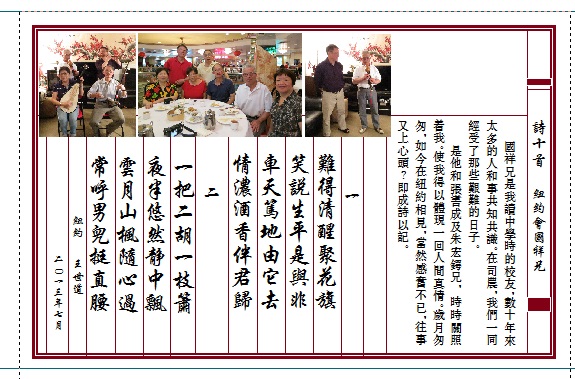 詩十首　紐約會國祥兄
國祥兄是我讀中學時的校友，數十年來
太多的人和事共知共識。在司晨，我們一同
經受了那些艱難的日子。
是他和張書成及朱宏鍔兄，時時關照
着我。使我得以體現一回人間真情。歲月匆
匆，如今在紐約相見，當然感奮不已，往事
又上心頭？即成詩以記。
一
難得清醒聚花旗
笑說生平是與非
車天篤地由它去
情濃酒香伴君歸
二
一把二胡一枝簫
夜半悠然静中飄
雲月山楓隨心過
常呼男兒挺直腰
紐約　王世道
二〇一三年七月